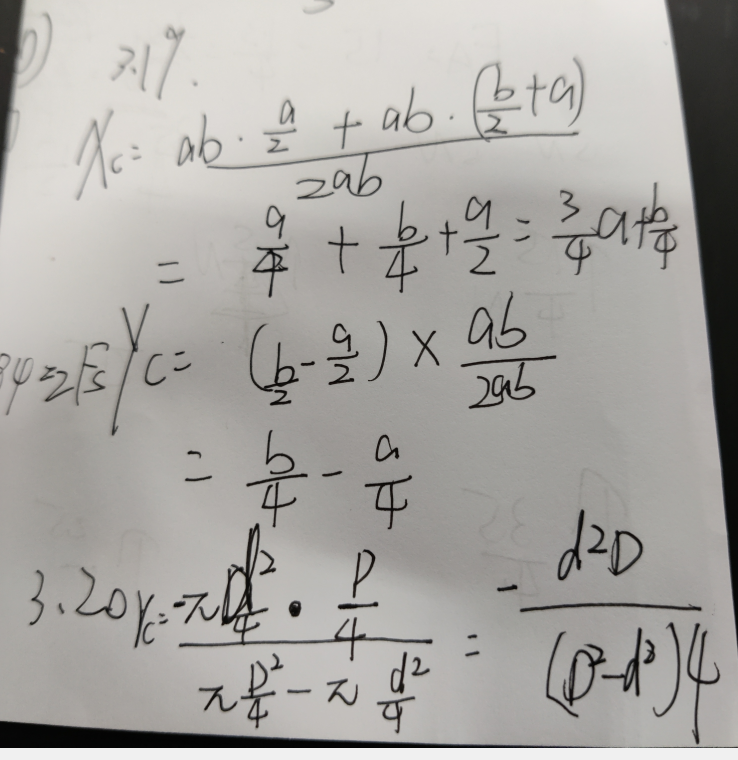 3.19.
Xc = (ab · a/2 + ab · (b/2 + a)) / 2ab
= a/4 + b/4 + a/2 = 3/4 a + b/4
Yc = (b/2 - a/2) × ab/2ab
= b/4 - a/4
3.20 Yc = (-π d²/4 · D/4) / (π D²/4 - π d²/4) = - d²D / (D²-d²)4